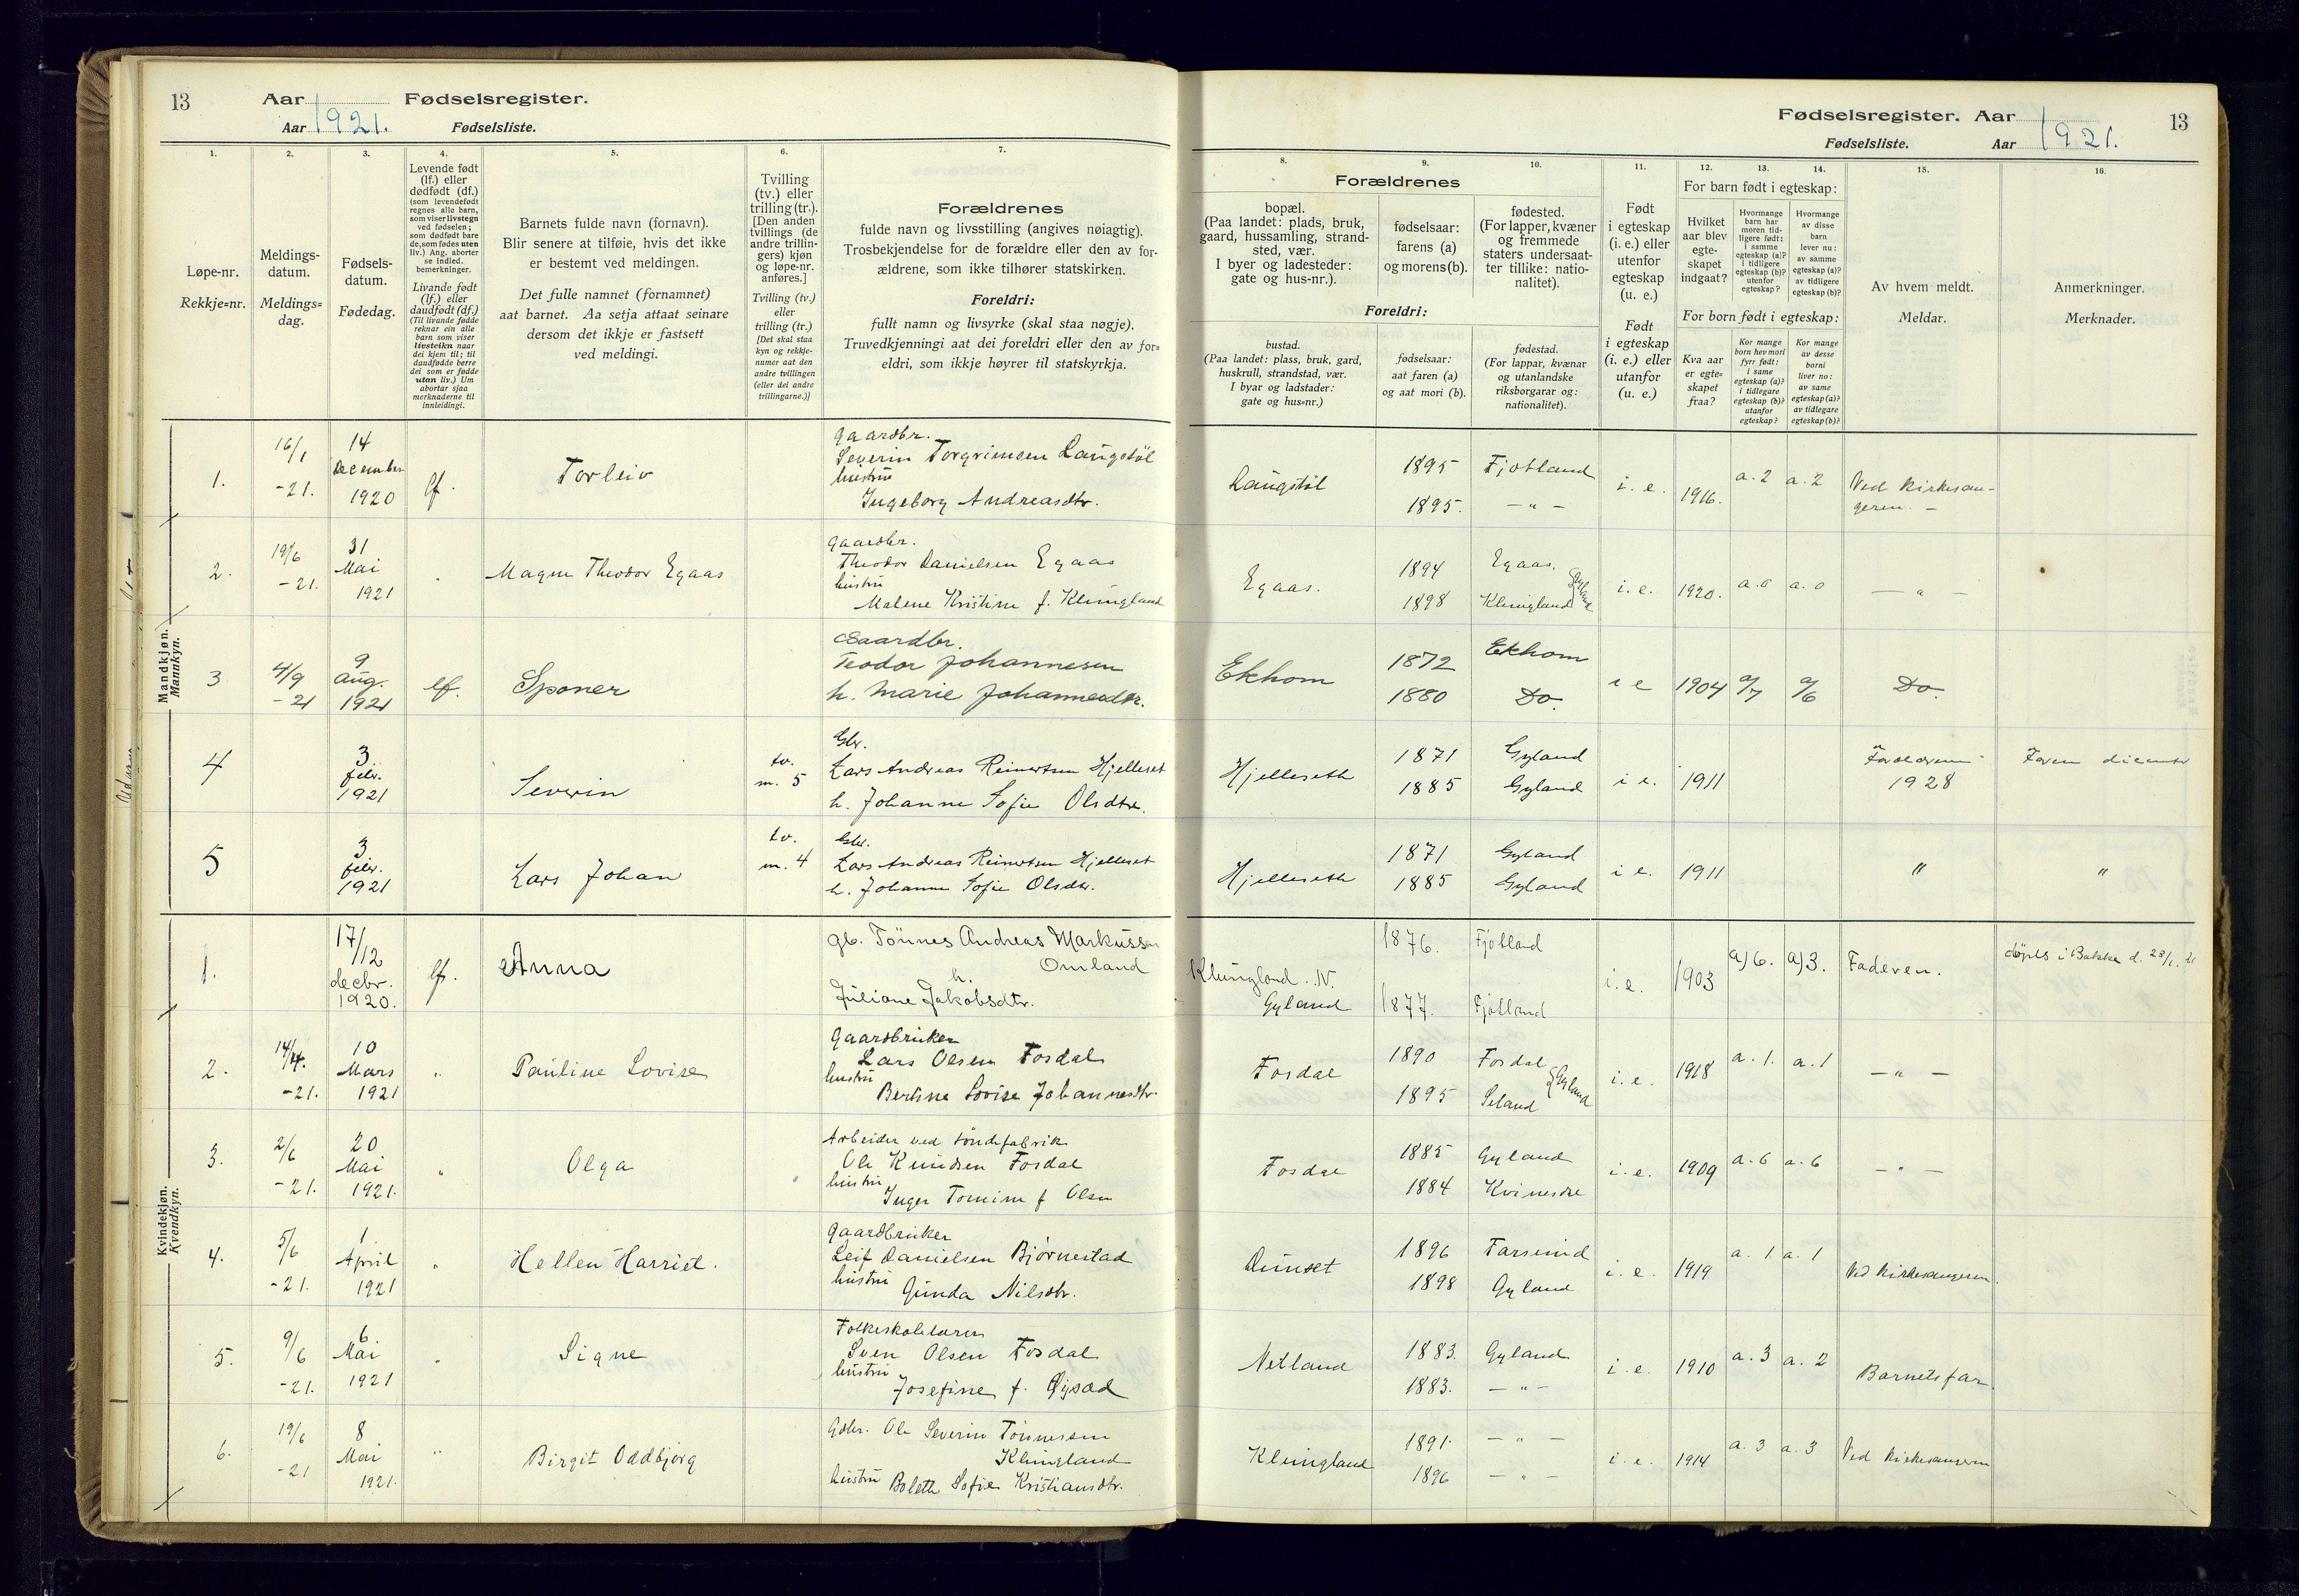 13 Aar Fødselsregister.
Aar 1921. Fødselsliste.
Fødselsregister. Aar 13
Fødselsliste. Aar 1921.
1. 2. 3. 4. 5. 6. 7. 8. 9. 10. 11. 12. 13. 14. 15. 16.
Løpe-nr.
Rekkje=nr.
Meldings-
datum.
Meldings=
dag.
Fødsels-
datum.
Fødedag.
Levende født
(lf.) eller
dødfødt (df.)
(som levendefødt
regnes alle barn,
som viser livstegn
ved fødselen;
som dødfødt bare
de, som fødes uten
liv.) Ang. aborter
se indled.
bemerkninger.
Livande født
(lf.) eller
daudfødt (df.)
(Til livande fødde
reknar ein alle
barn som viser
livsteikn naar
dei kjem til; til
daudfødde berre
dei som er fødde
utan liv.) Um
abortar sjaa
merknaderne til
innleidingi.
Barnets fulde navn (fornavn).
Blir senere at tilføie, hvis det ikke
er bestemt ved meldingen.
Det fulle namnet (fornamnet)
aat barnet. Aa setja attaat seinare
dersom det ikkje er fastsett
ved meldingi.
Tvilling
(tv.) eller
trilling (tr.).
[Den anden
tvillings (de
andre trillin-
gers) kjøn
og løpe-nr.
anføres.]
Tvilling (tv.)
eller
trilling (tr.)
[Det skal staa
kyn og rekkje-
numer aat den
andre tvillingen
(eller dei andre
trillingarne.)]
Forældrenes
fulde navn og livsstilling (angives nøiagtig).
Trosbekjendelse for de forældre eller den av for-
ældrene, som ikke tilhører statskirken.
Foreldri:
fullt namn og livsyrke (skal staa nøgje).
Truvedkjenningi aat dei foreldri eller den av for=
eldri, som ikkje høyrer til statskyrkja.
Forældrenes
bopæl.
(Paa landet: plads, bruk,
gaard, hussamling, strand-
sted, vær.
I byer og ladesteder:
gate og hus-nr.).
fødselsaar:
farens (a)
og morens (b).
fødested.
(For lapper, kvæner
og fremmede
staters undersaat-
ter tillike: natio-
nalitet).
Foreldri:
bustad.
(Paa landet: plass, bruk, gard,
huskrull, strandstad, vær.
I byar og ladstader:
gate og hus=nr.)
fødselsaar:
aat faren (a)
og aat mori (b).
fødestad.
(For lappar, kvænar
og utanlandske
riksborgarar og:
nationalitet).
Født
i egteskap
(i. e.) eller
utenfor
egteskap
(u. e.)
Født
i egteskap
(i. e.) eller
utanfor
(u. e.)
For barn født i egteskap:
Hvilket
aar blev
egte-
skapet
indgaat?
Hvormange
barn har
moren tid-
ligere født:
i samme
egteskap (a)?
i tidligere
egteskap (b)?
utenfor
egteskap?
Hvormange
av disse
barn
lever nu:
av samme
egteskap (a)?
av tidligere
egteskap (b)?
For born født i egteskap:
Kva aar
er egte=
skapet
fraa?
Kor mange
born hev mori
fyrr født:
i same
egteskap (a)?
i tidlegare
egteskap (b)?
utanfor
egteskap?
Kor mange
av desse
borni
liver no:
av same
egteskap (a)?
av tidlegare
egteskap (b)?
Av hvem meldt.
Meldar.
Anmerkninger.
Merknader.
Mandkjøn.
Mannkyn.
1. 16/1 -21. 14 December 1920 lf. Torleiv
Gaardbr.
Severin Torgrimsen Langstøl
hustru
Ingeborg Andreasdtr.
Langstøl 1895 Fjotland i. e. 1916. a. 2 a. 2 Ved kirkesan-
1895. — " — geren. —
2. 19/6 -21. 31 Mai 1921 " Magne Theodor Egaas
Gaardbr.
Theodor Danielsen Egaas
hustru
Malene Kristine f. Klungland
Egaas. 1894 Egaas. i. e. 1920. a. 0 a. 0 — " —
1898 Klungland Gyland
3 4/9 -21 9 Aug. 1921 lf. Sponer
Gaardbr.
Teodor Johannesen
h. Marie Johannesdtr.
Ekhom 1872 Ekhom i e 1904 a/7 a/6 Do.
1880 Do.
4 3. febr. 1921 Severin tv. m. 5
Gbr.
Lars Andreas Reinertsen Hjelleset
h. Johanne Sofie Olsdtr.
Hjelleseth 1871 Gyland i e. 1911 Forældrene
1885 Gyland 1928
5 3 febr. 1921 Lars Johan tv. m. 4
Gbr.
Lars Andreas Reinertsen Hjelleset
h. Johanne Sofie Olsdtr.
Hjelleseth 1871 Gyland i e. 1911 " "
1885 Gyland
Kvindekjøn.
Kvendkyn.
1. 17/12 decbr. 1920. lf. Anna
gb. Tønnes Andreas Markussen
Omland
h.
Juliane Jakobsdtr.
Klungland. N. 1876. Fjotland i. e. 1903 a) 6. a) 3. Faderen. døpt i Bakke d. 23/1. 21
Gyland 1877. Fjotland
2. 14/4. -21. 10 Mars 1921 " Pauline Lovise
Gaardbruker
Lars Olsen Fosdal
hustru
Bertine Lovise Johannesdtr.
Fosdal 1890 Fosdal i. e. 1918 a. 1. a. 1 — " —
1895 Seland Gyland
3. 2/6 -21. 20 Mai 1921. " Olga
Arbeider ved tøndefabrik
Ole Knudsen Fosdal
hustru
Inger Tomine f Olsen
Fosdal 1885 Gyland i. e. 1909 a. 6 a. 6 — " —
1884 Kvinesdal
4. 5/6 -21. 1. April 1921 " Hellen Harriet.
Gaardbruker
Leif Danielsen Bjørnestad
hustru
Gunda Nilsdtr.
Dunset 1896 Farsund i. e. 1919 a. 1 a. 1 Ved kirkesangeren.
1898 Gyland
5. 9/6 -21. 6. Mai 1921 " Signe
Folkeskolelærer
Sven Olsen Fosdal
hustru
Josefine f. Øysæd
Netland 1883. Gyland i. e. 1910 a. 3 a. 2 Barnets far.
1883. — " —
6. 19/6 -21 8 Mai 1921. " Birgit Oddbjørg
Gdbr. Ole Severin Tønnesen
Klungland
hustru Bolette Sofie Kristiansdtr.
Klungland 1891. — " — i. e. 1914 a. 3 a. 3 Ved kirkesangeren
1896 — " —